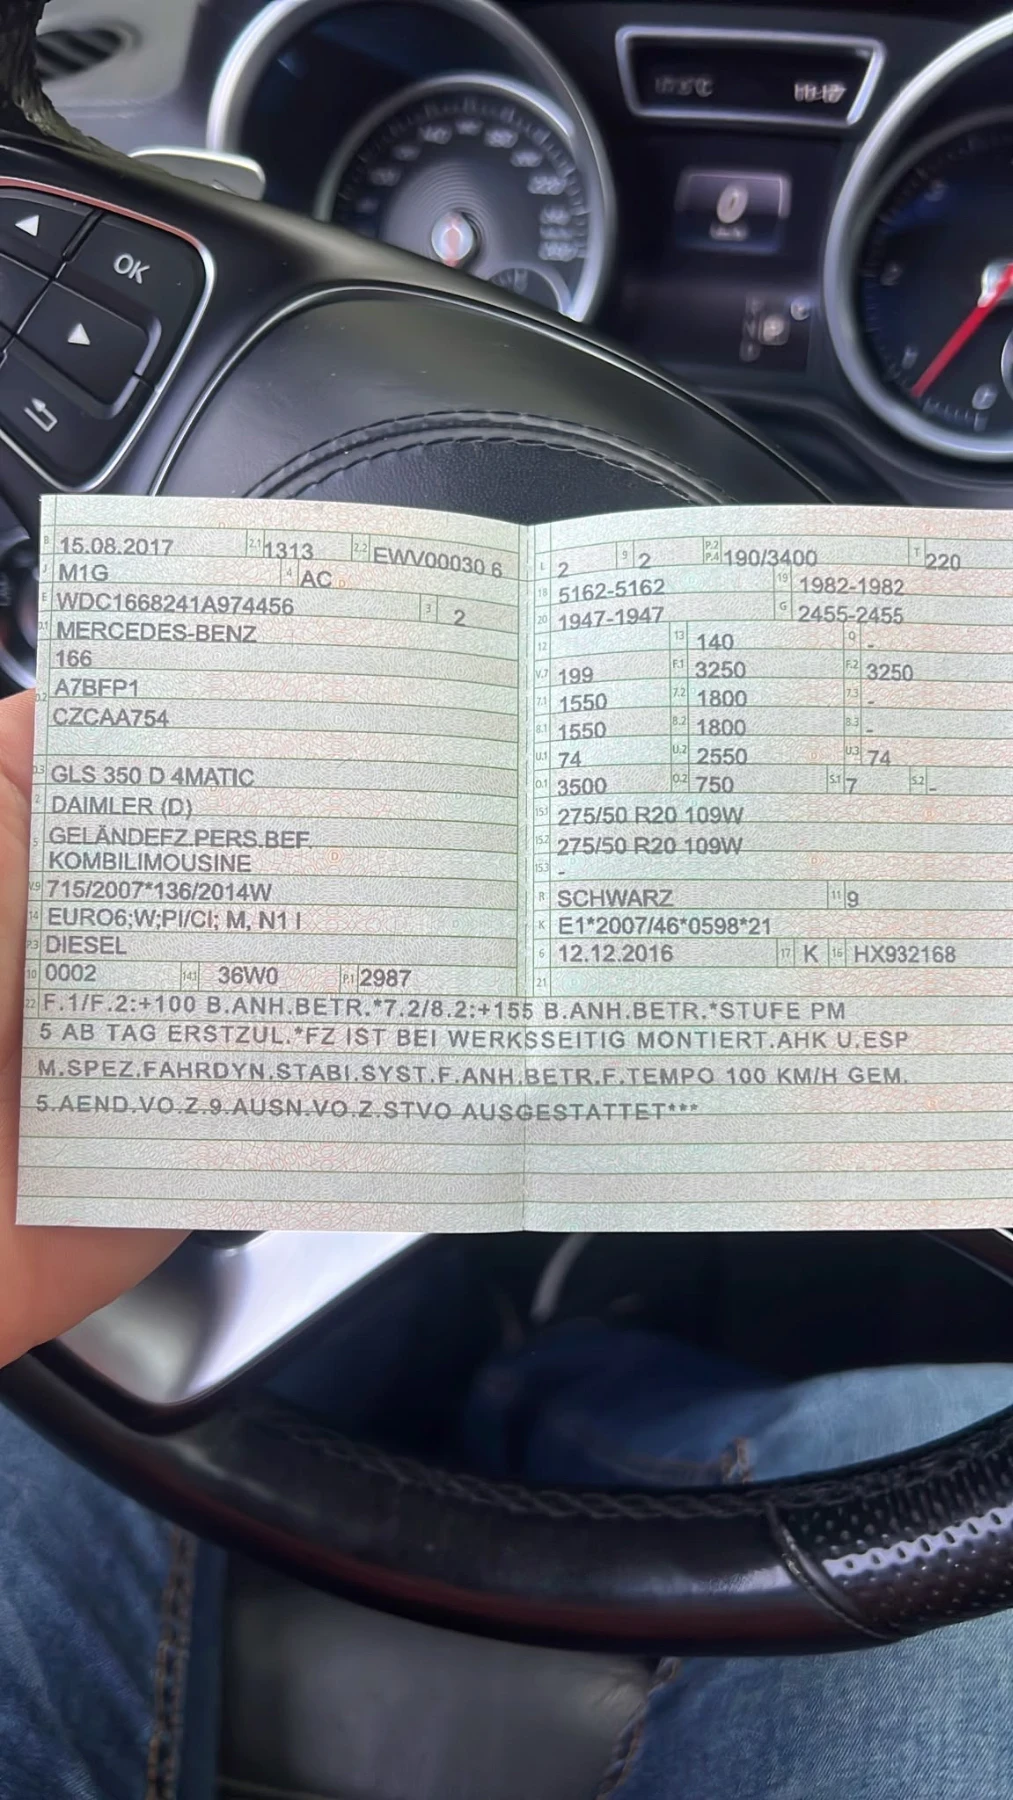 OK
B 15.08.2017 2.1 1313 2.2 EWV00030 6
J M1G 4 AC
E WDC1668241A974456 3 2
D.1 MERCEDES-BENZ
166
D.2 A7BFP1
CZCAA754
D.3 GLS 350 D 4MATIC
2 DAIMLER (D)
5 GELÄNDEFZ.PERS.BEF.
KOMBILIMOUSINE
V.9 715/2007*136/2014W
14 EURO6;W;PI/CI; M, N1 I
P.3 DIESEL
10 0002 14.1 36W0 P.1 2987
L 2 9 2 P.2 P.4 190/3400 T 220
18 5162-5162 19 1982-1982
20 1947-1947 G 2455-2455
12 13 140 Q -
V.7 199 F.1 3250 F.2 3250
7.1 1550 7.2 1800 7.3 -
8.1 1550 8.2 1800 8.3 -
U.1 74 U.2 2550 U.3 74
O.1 3500 O.2 750 S.1 7 S.2 -
15.1 275/50 R20 109W
15.2 275/50 R20 109W
15.3 -
R SCHWARZ 11 9
K E1*2007/46*0598*21
6 12.12.2016 17 K 16 HX932168
21
22 F.1/F.2:+100 B.ANH.BETR.*7.2/8.2:+155 B.ANH.BETR.*STUFE PM
5 AB TAG ERSTZUL.*FZ IST BEI WERKSSEITIG MONTIERT.AHK U.ESP
M.SPEZ.FAHRDYN.STABI.SYST.F.ANH.BETR.F.TEMPO 100 KM/H GEM.
5.AEND.VO.Z.9.AUSN.VO.Z.STVO AUSGESTATTET***